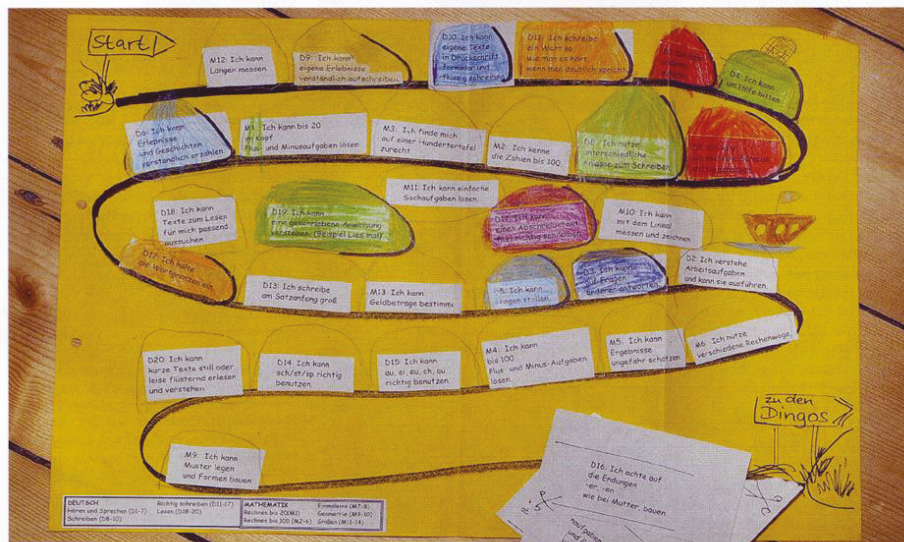 Start
M12: Ich kann
Längen messen.
D9: Ich kann
eigene Erlebnisse
verständlich aufschreiben.
D10: Ich kann
eigene Texte
in Druckschrift
formklar und
flüssig schreiben.
D11: Ich schreibe
ein Wort so
wie man es hört,
wenn man deutlich spricht.
Ich kann
um Hilfe bitten
Ich kann
Erlebnisse
und Geschichten
verständlich erzählen.
M1: Ich kann bis 20
im Kopf
Plus- und Minusaufgaben lösen.
M3: Ich finde mich
auf einer Hundertertafel
zurecht.
M2: Ich kenne
die Zahlen bis 100.
Ich nutze
unterschiedliche
Anlässe zum Schreiben
D18: Ich kann
Texte zum Lesen
für mich passend
aussuchen
D19: Ich kann
eine geschriebene Anweisung
verstehen. (Beispiel Lies mal)
M11: Ich kann einfache
Sachaufgaben lösen.
Ich kann
einen Abschreibtext
richtig schreiben
M10: Ich kann
mit dem Lineal
messen und zeichnen
D12: Ich halte
die Wortgrenzen ein.
D13: Ich schreibe
am Satzanfang groß.
M13: Ich kann
Geldbeträge bestimmen
D5: Ich kann
Fragen stellen.
D3: Ich kann
auf Fragen
anderer antworten.
D2: Ich verstehe
Arbeitsaufgaben
und kann sie ausführen.
D20: Ich kann
kurze Texte still oder
leise flüsternd erlesen
und verstehen.
D14: Ich kann
sch/st/sp richtig
benutzen.
D15: Ich kann
au, ei, eu, ch, qu
richtig benutzen.
M4: Ich kann
bis 100
Plus- und Minus-Aufgaben
lösen.
M5: Ich kann
Ergebnisse
ungefähr schätzen.
M6: Ich nutze
verschiedene Rechenwege.
zu den
Dingos
M9: Ich kann
Muster legen
und Formen bauen.
D16: Ich achte auf
die Endungen
-er, -en
wie bei Mutter, bauen.
DEUTSCH
Hören und Sprechen (D1-7)
Schreiben (D8-10)
Richtig schreiben (D11-17)
Lesen (D18-20)
MATHEMATIK
Rechnen bis 20(M1)
Rechnen bis 100 (M2-6)
Einmaleins (M7-8)
Geometrie (M9-10)
Größen (M11-14)